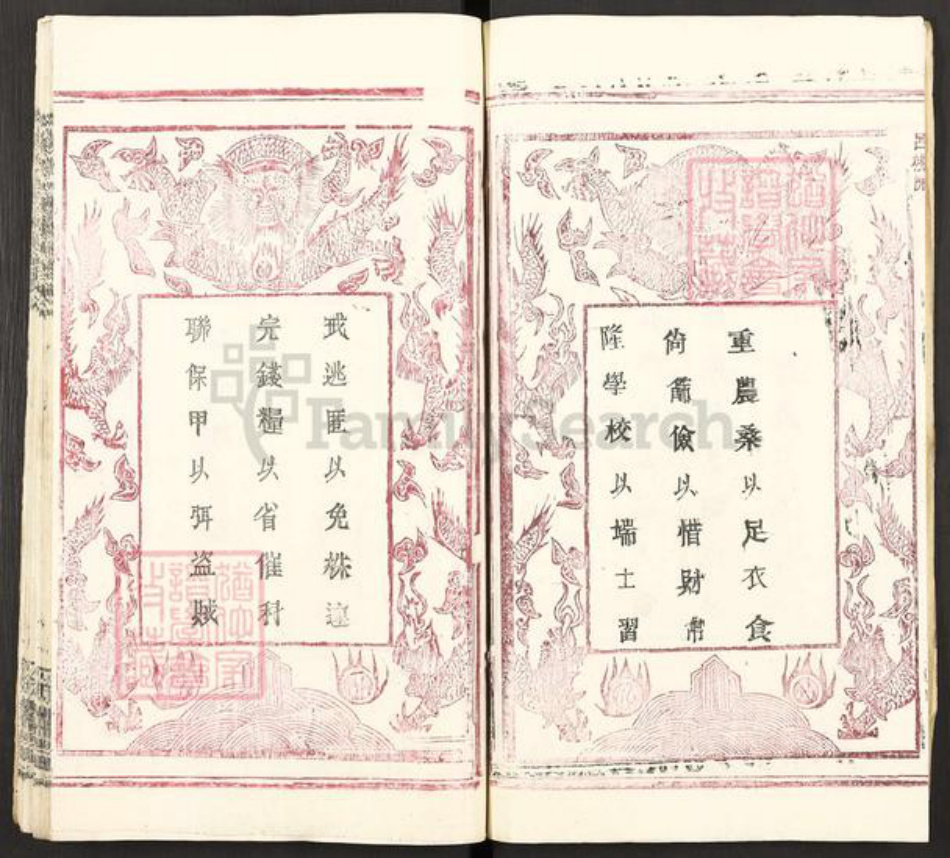 重農桑以足衣食
尚節儉以惜財帛
隆學校以端士習
戒逃匿以免株連
完錢糧以省催科
聯保甲以弭盜賊
FamilySearch